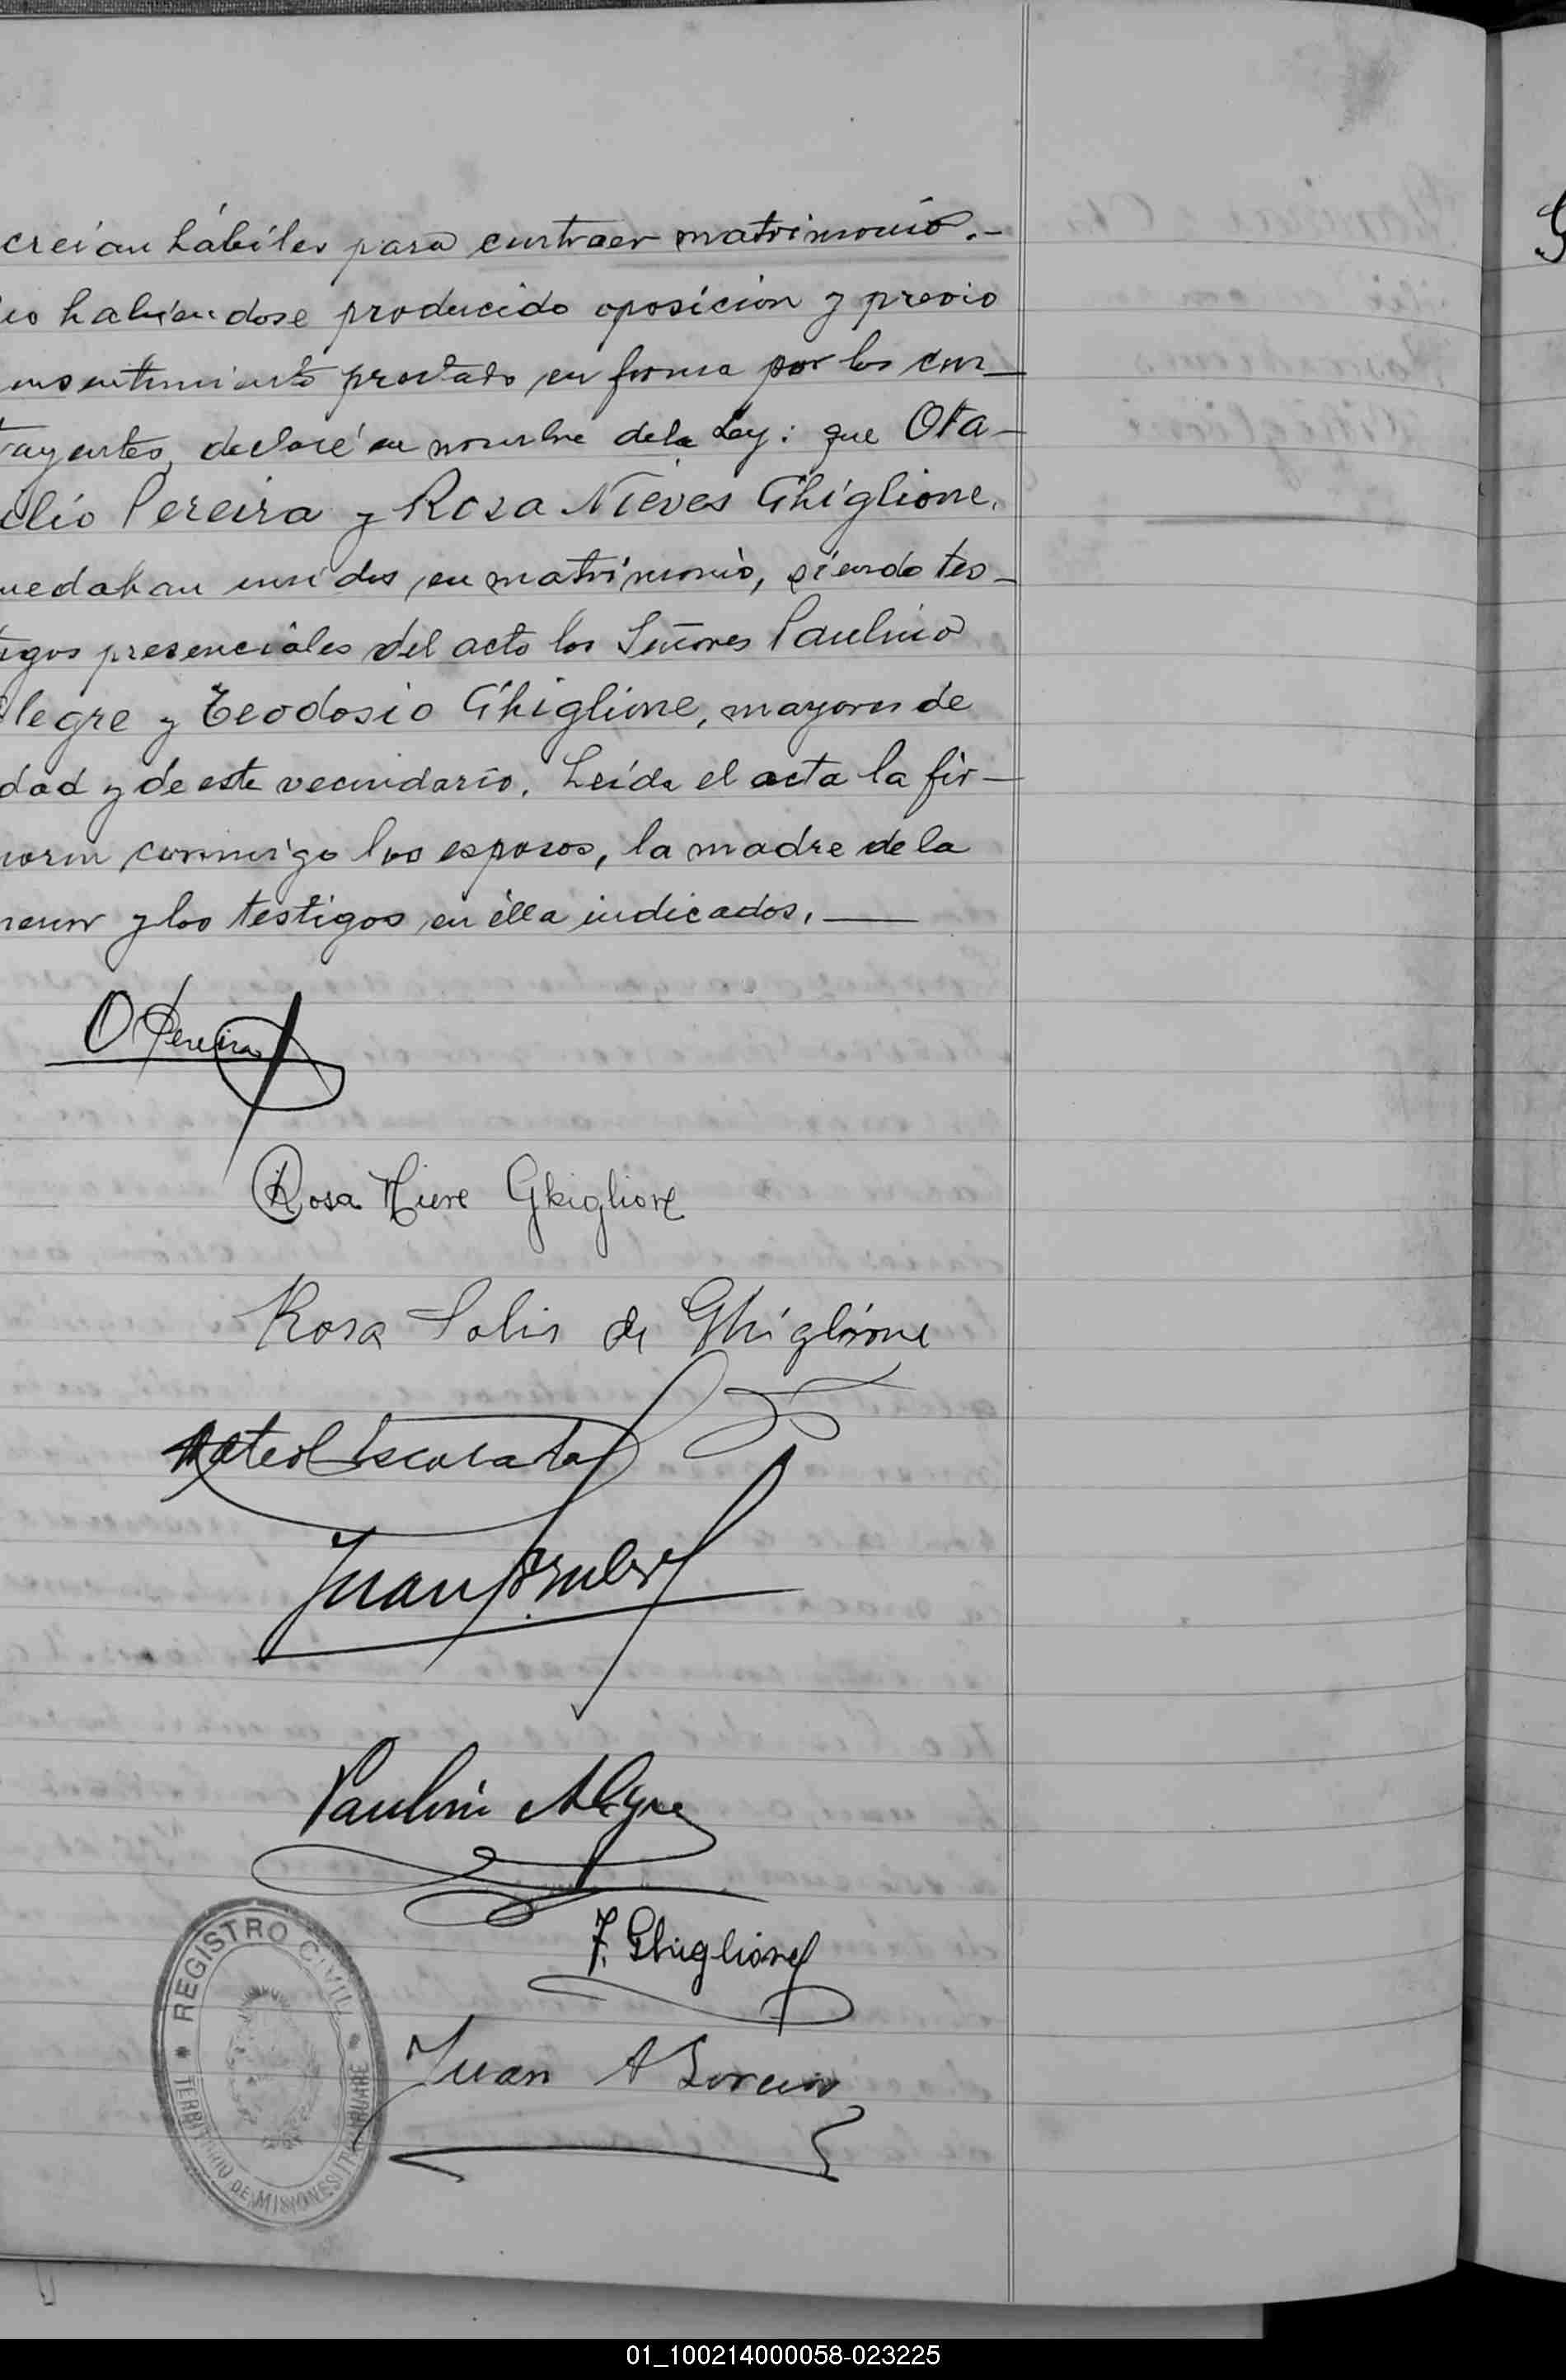 creían hábiles para contraer matrimonio.-
no habiendose producido oposición y previo
consentimiento prestado en forma por los con-
trayentes, declaré en nombre de la Ley: que Ota-
cilio Pereira y Rosa Nieves Ghiglione,
quedaban unidos en matrimonio, siendo tes-
tigos presenciales del acto los Señores Paulino
Alegre y Teodosio Ghiglione, mayores de
edad y de este vecindario. Leída el acta la fir-
maron conmigo los esposos, la madre de la
menor y los testigos en élla indicados.
O Pereira
Rosa Nieve Ghiglione
Rosa Solis de Ghiglione
Juan
Paulino Alegre
T. Ghiglione
Juan A
REGISTRO CIVIL
TERRITORIO DE MISIONES
01_100214000058-023225